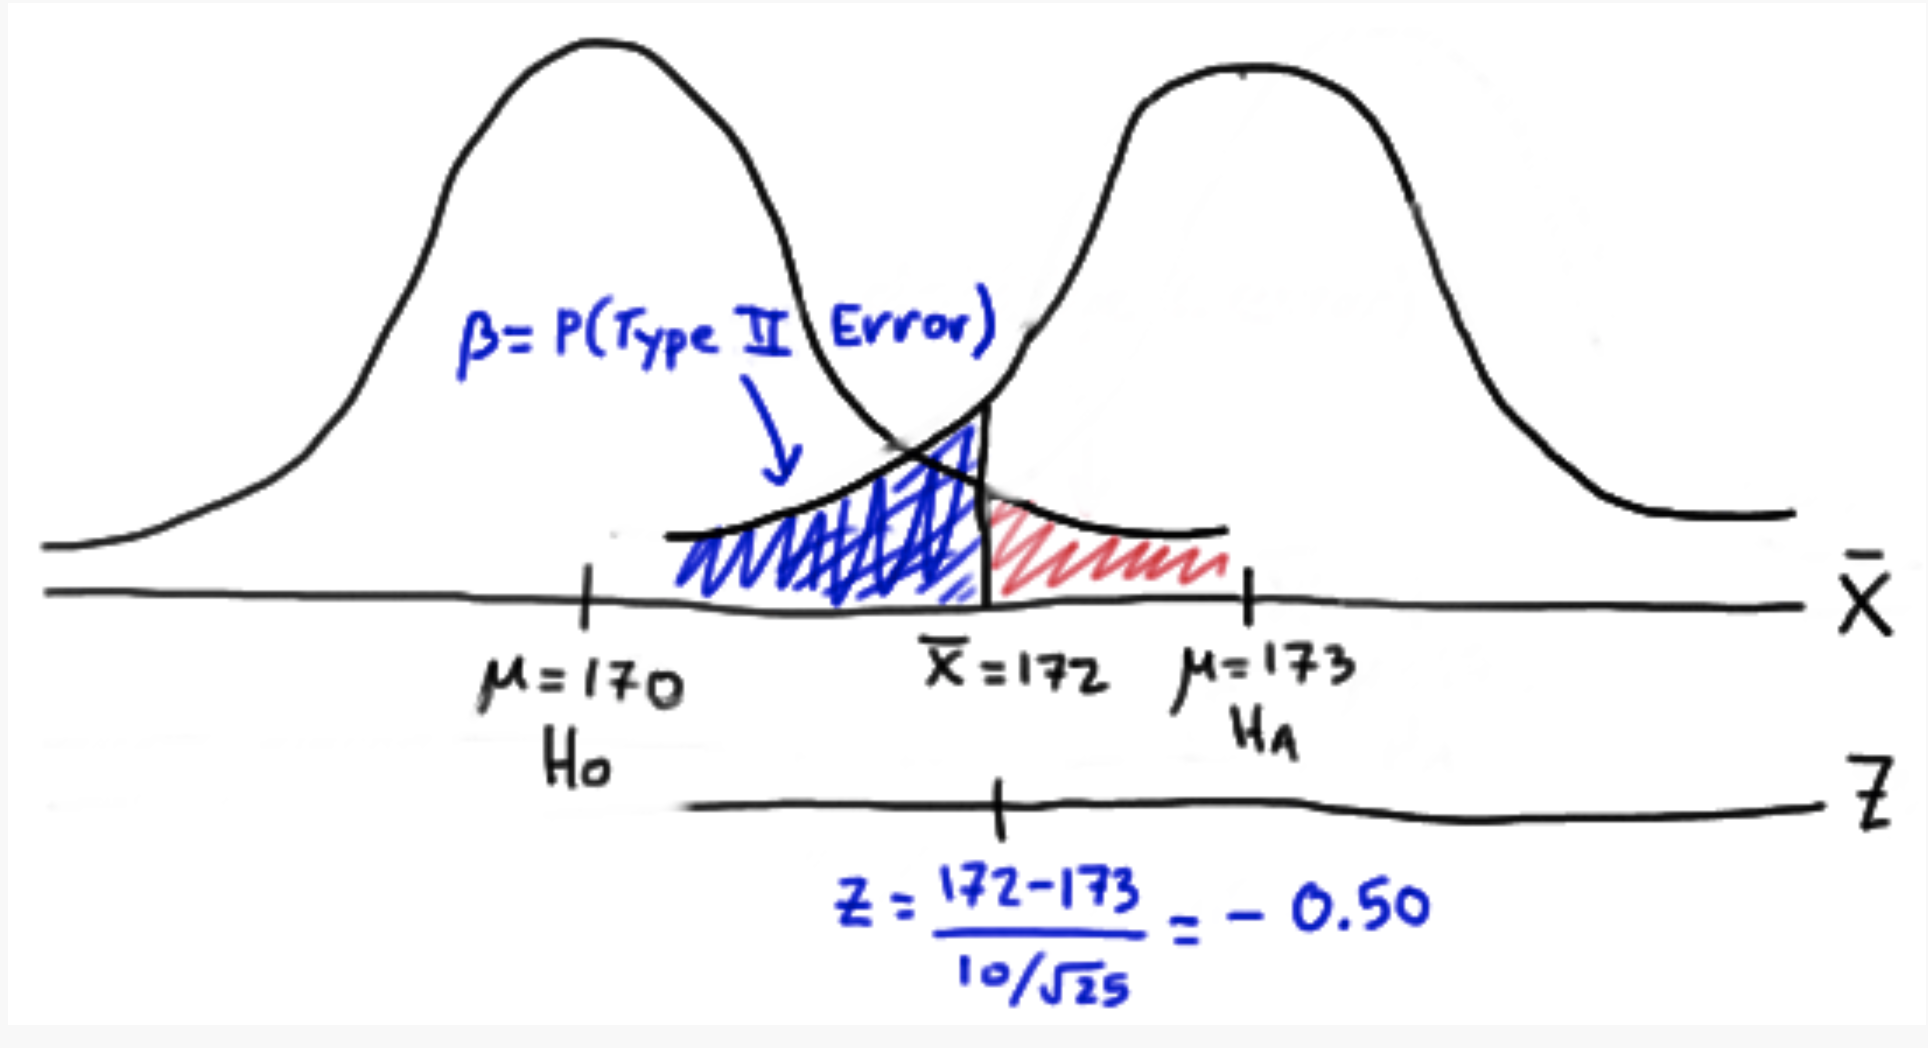 β = P(Type II Error)
X̄
μ = 170
X̄ = 172
μ = 173
H0
HA
Z
Z = 172-173 / 10/√25 = - 0.50